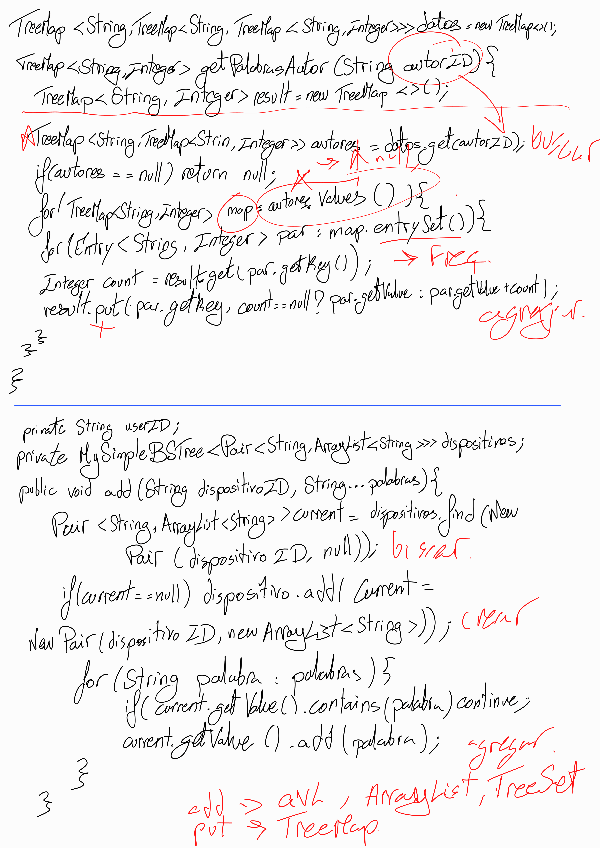 TreeMap <String,TreeMap<String, TreeMap <String,Integer>>> datos = new TreeMap<>();
TreeMap<String,Integer> getPalabrasAutor (String autorID){
TreeMap<String, Integer> result = new TreeMap <>();
TreeMap <String,TreeMap<Strin, Integer>> autores = datos.get(autorID); buscar
if(autores == null) return null; → A null
for( TreeMap<String,Integer> map : autores.values () ){
for (Entry <String, Integer> par : map.entrySet()){
→ Freq.
Integer count = result.get(par.getKey());
result.put(par.getKey, count==null? par.getValue : par.getValue+count);
+ agregar.
}}
}
private String userID;
private MySimpleBSTree<Pair<String,ArrayList<String>>> dispositivos;
public void add (String dispositivoID, String... palabras){
Pair <String, ArrayList<String>> current = dispositivos.find (New
Pair (dispositivo ID, null)); buscar.
if(current==null) dispositivo.add( Current =
New Pair(dispositivo ID, new ArrayList<String>)); crear
for (String palabra : palabras){
if(current.getValue().contains(palabra) continue;
current.getValue ().add (palabra); agregar.
}
}
add → aVL, ArrayList, TreeSet
put → TreeMap